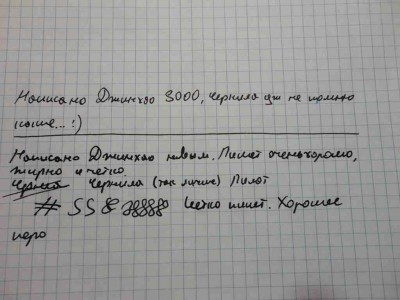 Написано Джинхао 3000, чернила уж не помню
какие... :)
Написано Джинхао новым. Пишет очень хорошо,
жирно и четко.
Чернила (так лучше) Пилот
# SS 8 Четко пишет. Хорошее
перо